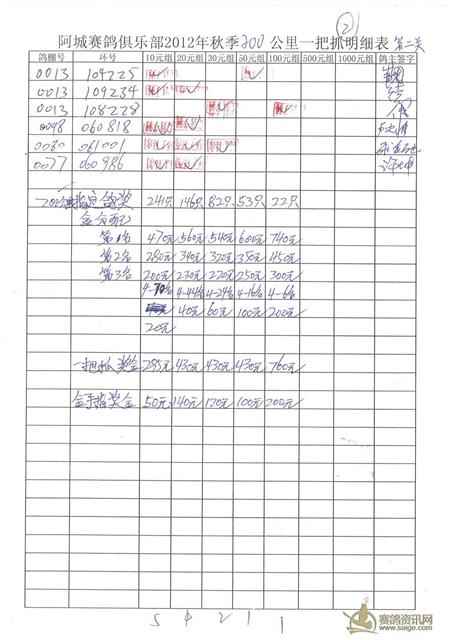 ②
阿城赛鸽俱乐部2012年秋季200公里一把抓明细表 第二关
鸽棚号 环号 10元组 20元组 30元组 50元组 100元组 300元组 500元组 1000元组 鸽主签字
0013 104225
0013 109234
0013 108228
0098 060818
0080 061001
0077 060986
200 指定鸽奖 241只 146只 82只 53只 22只
金分配
第1名 470元 560元 540元 600元 740元
第2名 280元 340元 320元 350元 450元
第3名 200元 230元 220元 250元 300元
4-70名 4-44名 4-24名 4-16名 4-6名
40元 60元 100元 200元
20元
一把抓奖金 295元 430元 430元 430元 760元
金手指奖金 50元 140元 120元 100元 200元
5 4 2 1 1
赛鸽资讯网
www.saige.com